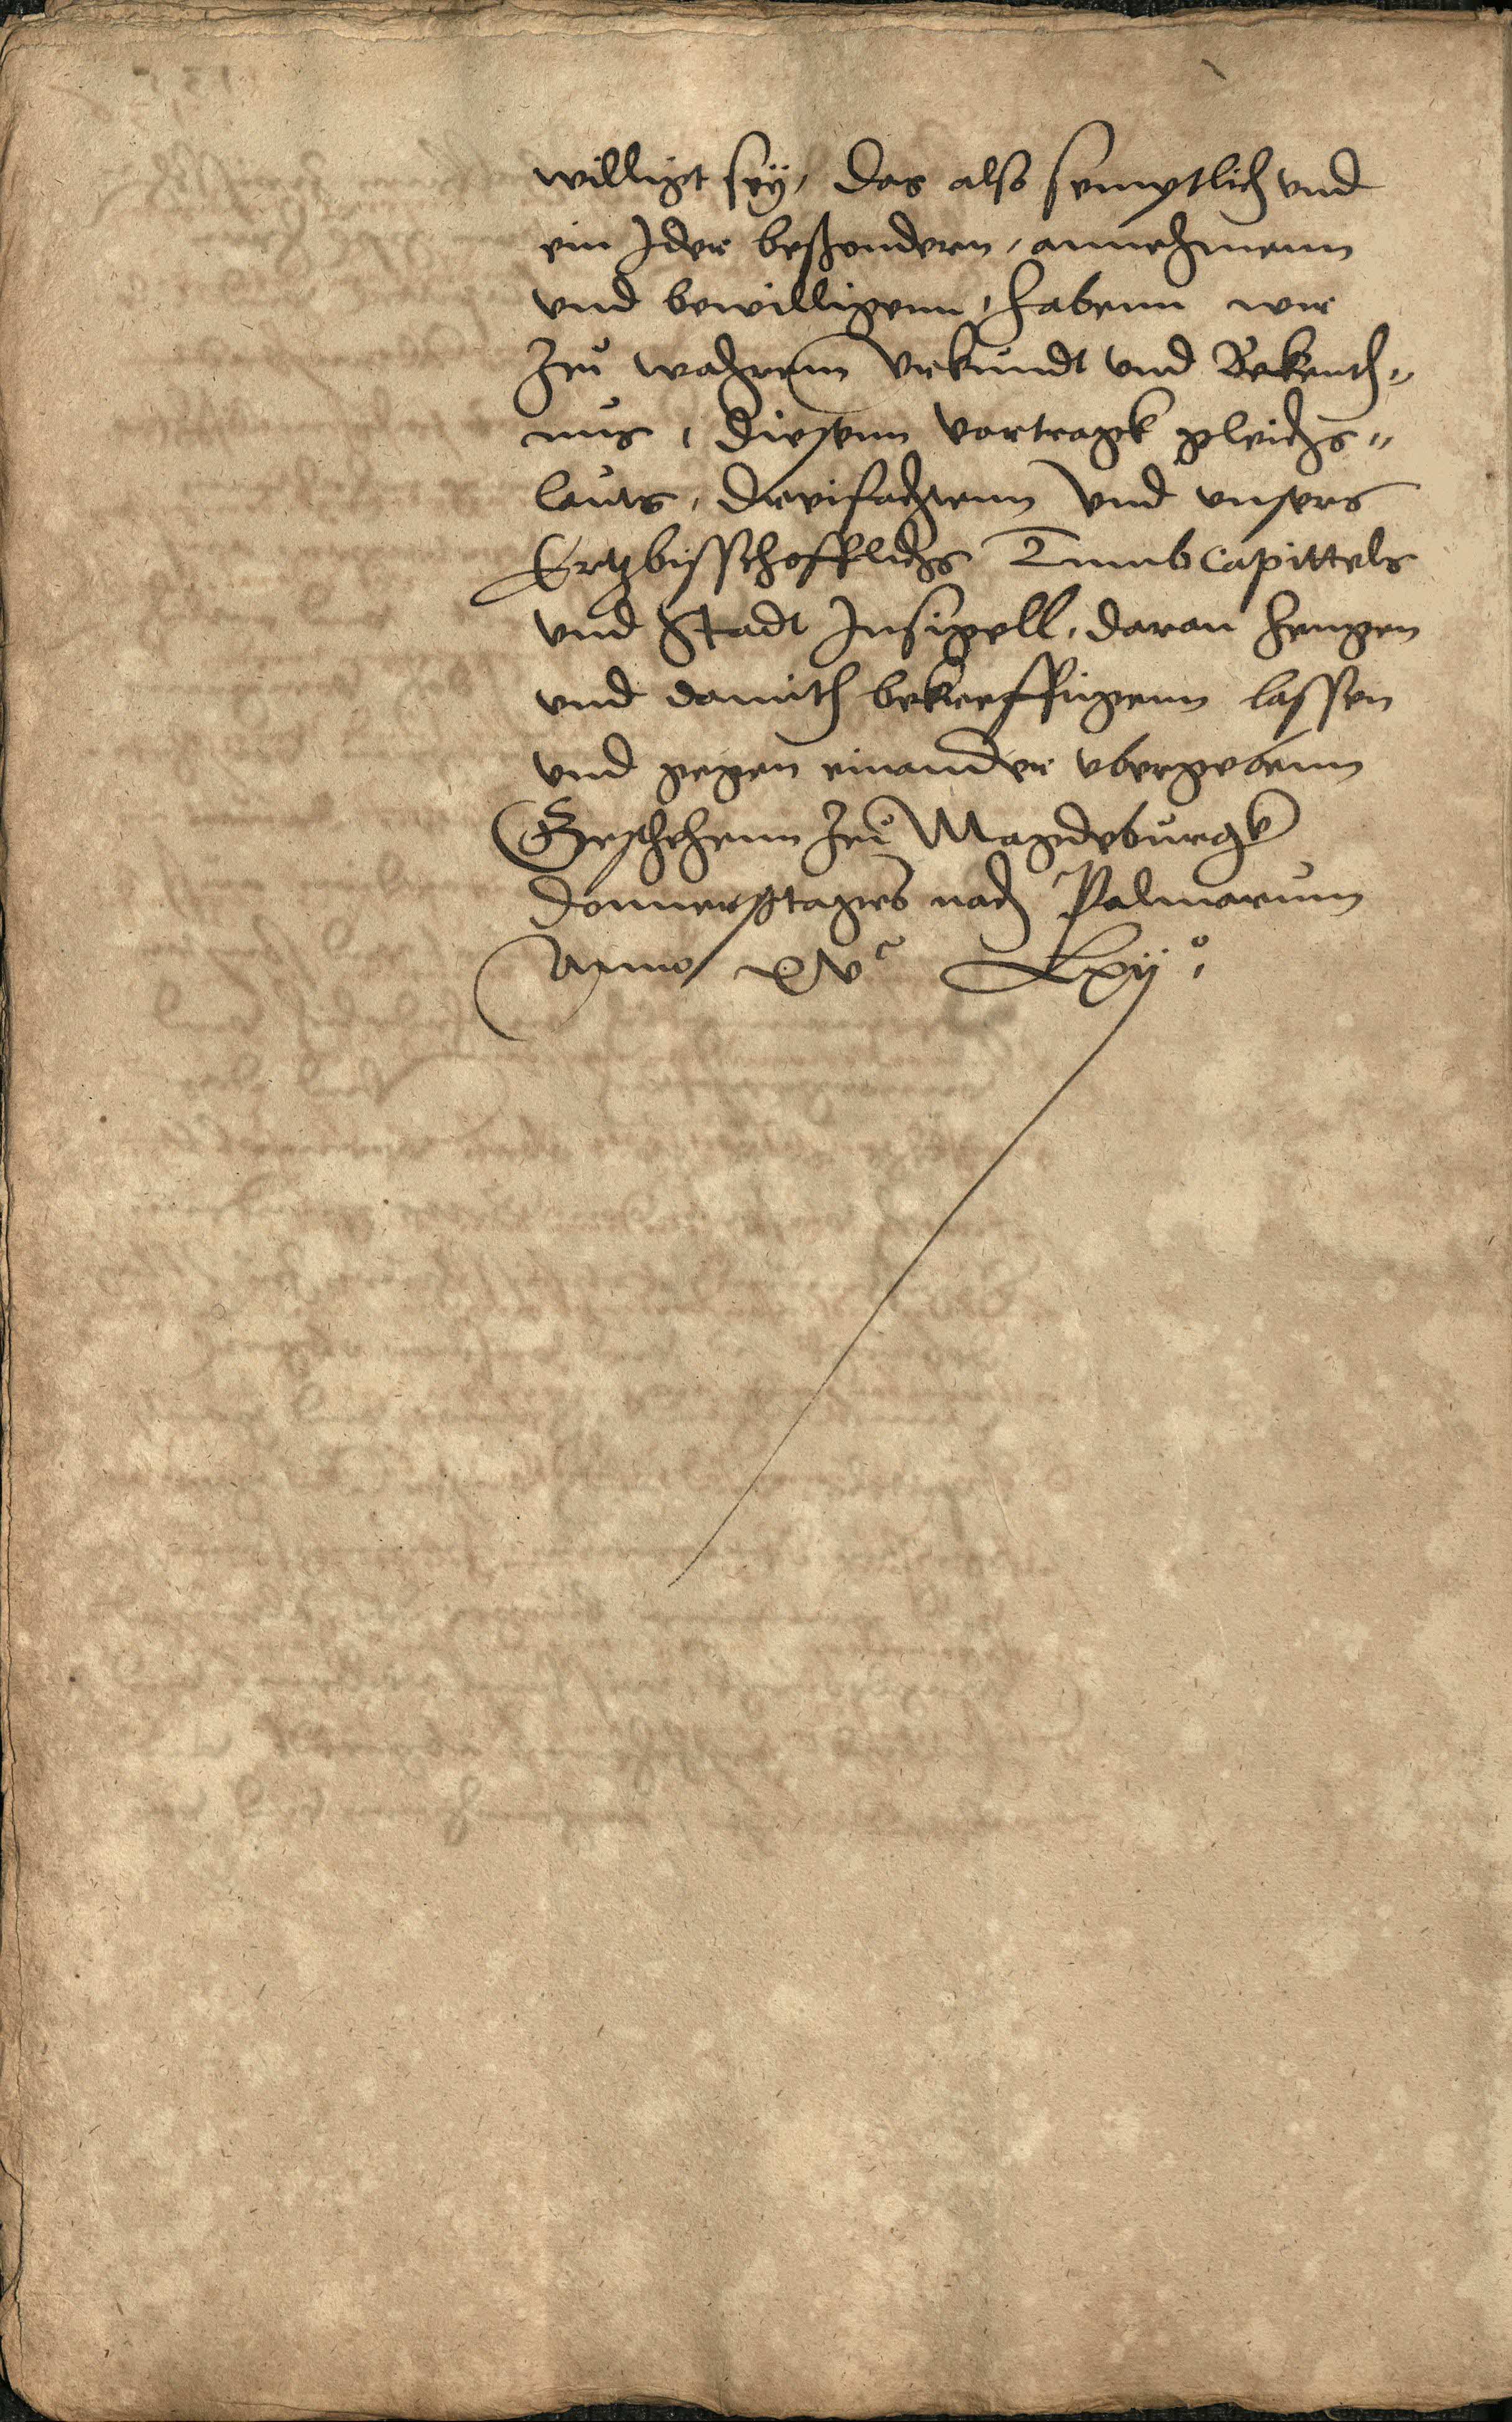 willigt seÿ, das also semptlich vnd
ein Jder beßondern, annehmenn
vnd bewilligenn, habenn wir
Zu wahrem Vrkundt vnd Bekenth„
nus, diesenn vortragk gleichs„
lauts, dreifachtenn Vnd vnsers
Ertzbisschofflichs Tumbcapittels
vnd Stadt Insigell, daran hengen
vnd damith bekreffigenn lassen
vnd gegen einander vbergebenn
Geschehenn Zu Magdeburgk
Donnerstages nach Palmarum
Anno XVᶜ Lxijᵒ,